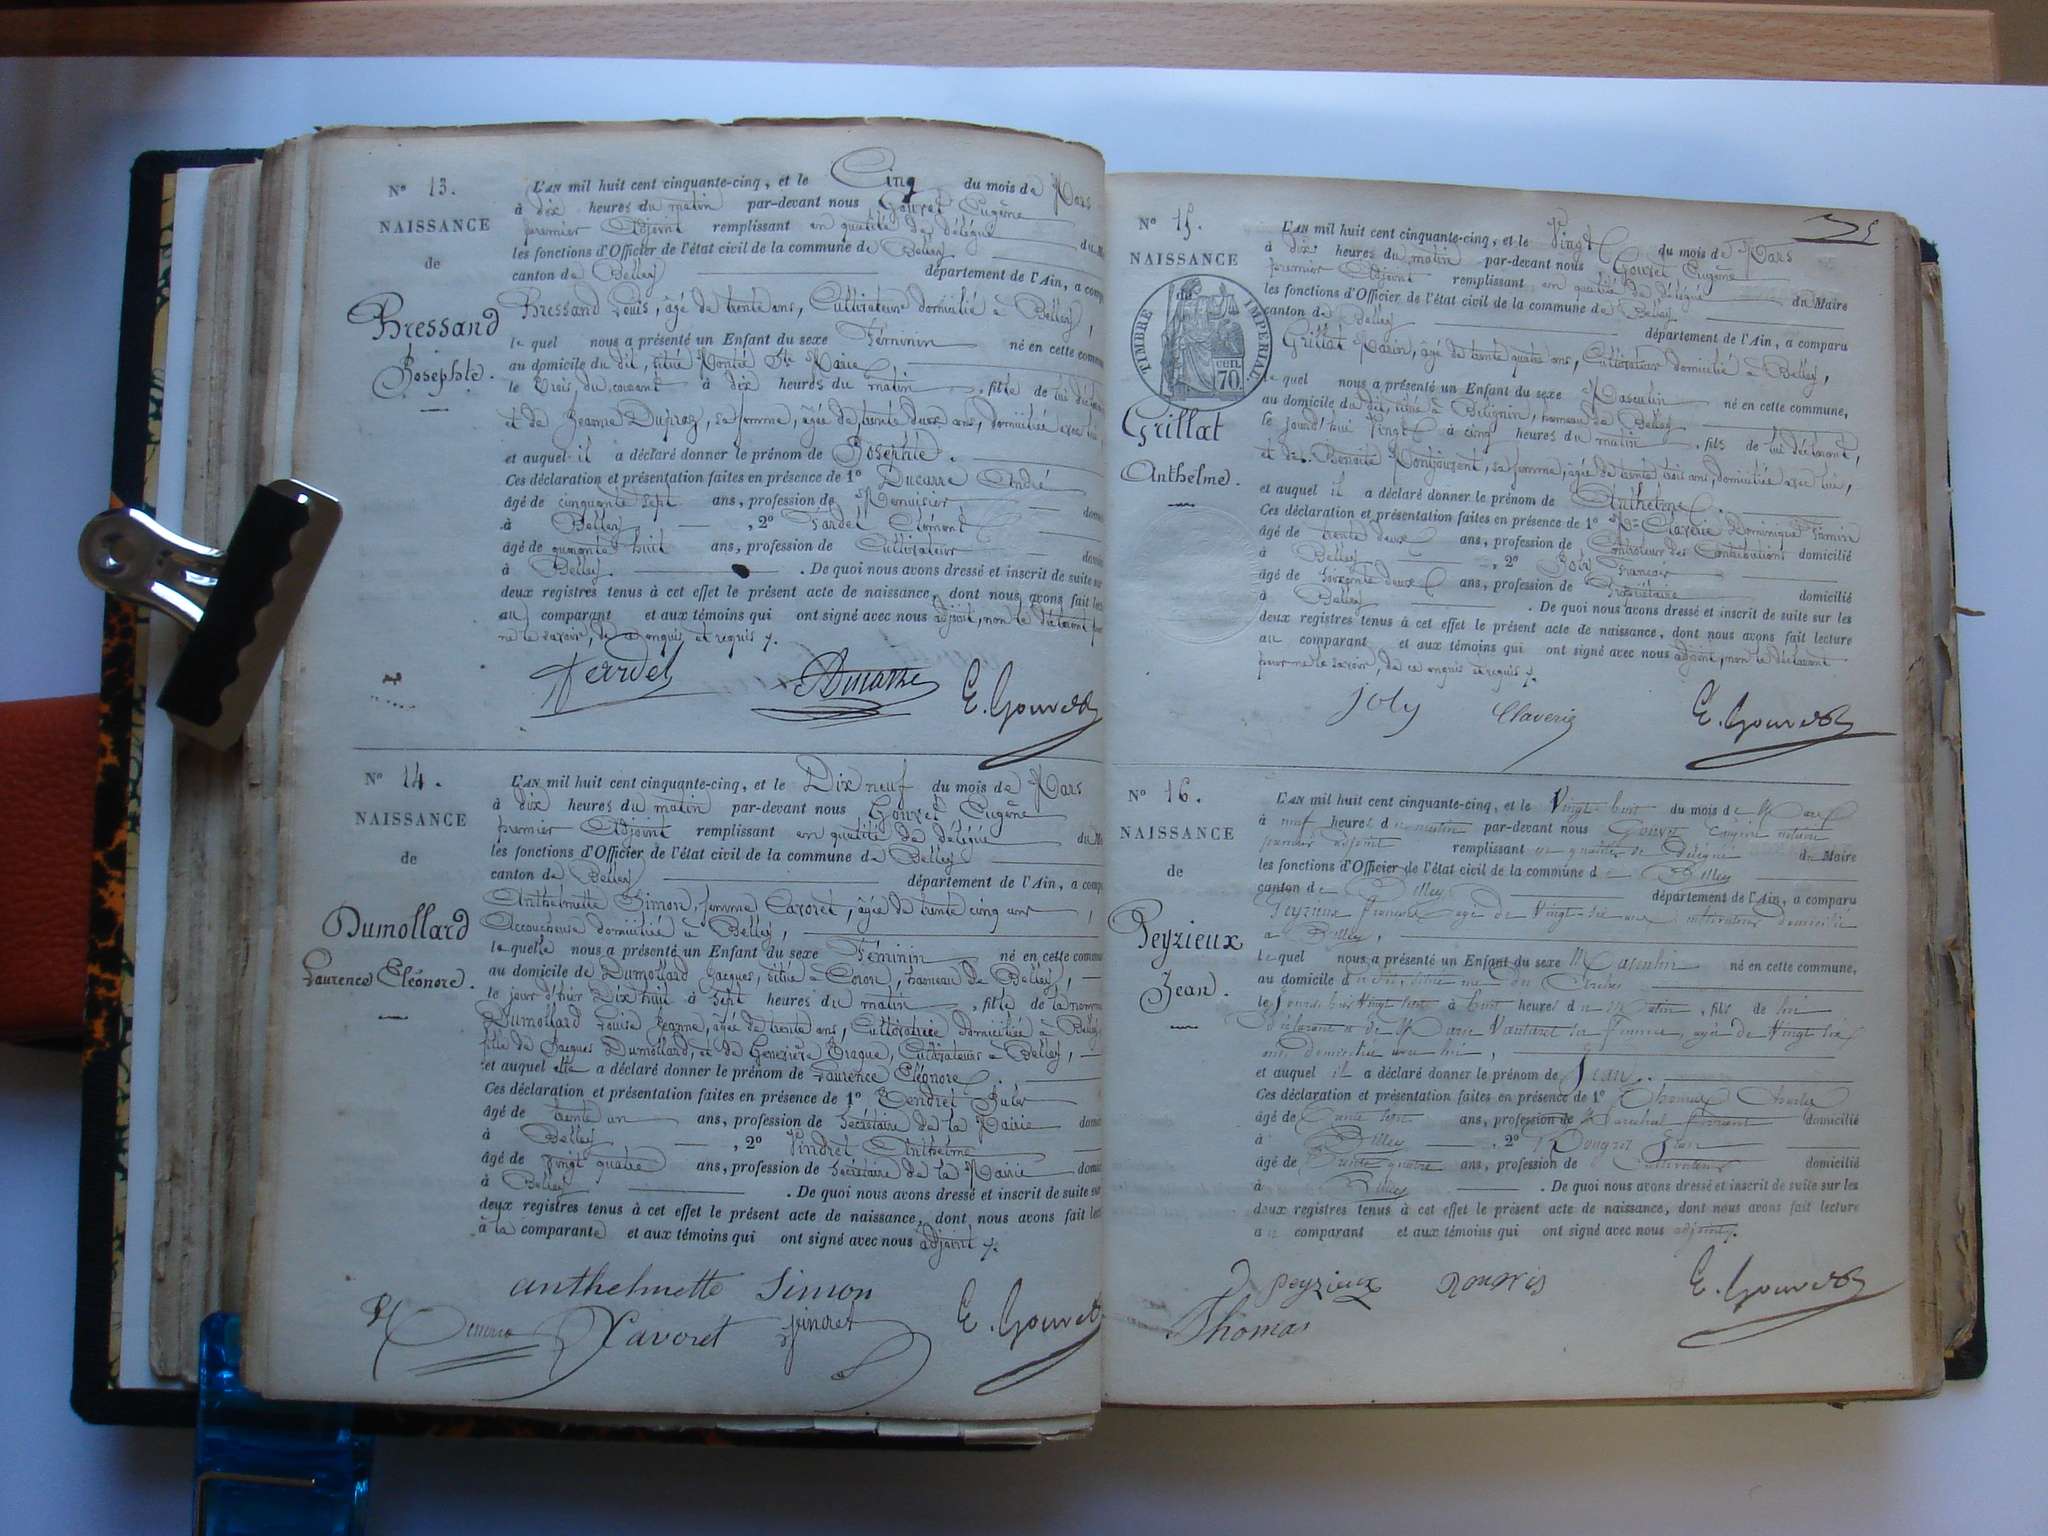 N° 13.
NAISSANCE
de
Bressand
Josephte.
L'AN mil huit cent cinquante-cinq, et le Cinq du mois de Mars
à dix heures du matin par-devant nous Gouvet Eugène
premier Adjoint remplissant en qualité de délégué du M
les fonctions d'Officier de l'état civil de la commune de Belley
canton de Belley département de l'Ain, a compa
Bressand Louis, âgé de trente ans, Cultivateur domicilié à Belley,
le quel nous a présenté un Enfant du sexe Féminin né en cette commune
au domicile du dit, situé Montée Ste Marie
le trois du courant à dix heures du matin, fille de lui déclarant
et de Jeanne Dupraz, sa femme, âgée de trente deux ans, domiciliée avec lui,
et auquel il a déclaré donner le prénom de Josephte.
Ces déclaration et présentation faites en présence de 1° Ducarre André
âgé de cinquante sept ans, profession de Menuisier domi
à Belley, 2° Clément
âgé de quarante huit ans, profession de Cultivateur domi
à Belley. De quoi nous avons dressé et inscrit de suite sur
deux registres tenus à cet effet le présent acte de naissance, dont nous avons fait lec
au comparant et aux témoins qui ont signé avec nous adjoint, non le déclarant pour
ne le savoir, de ce enquis et requis
E. Gouvet
N° 14.
NAISSANCE
de
Dumollard
Laurence Eléonore.
L'AN mil huit cent cinquante-cinq, et le Dix neuf du mois de Mars
à dix heures du matin par-devant nous Gouvet Eugène
premier Adjoint remplissant en qualité de délégué du M
les fonctions d'Officier de l'état civil de la commune de Belley
canton de Belley département de l'Ain, a compa
Anthelmette Simon, femme Cavoret, âgée de trente cinq ans,
Accoucheuse domiciliée à Belley,
le quelle nous a présenté un Enfant du sexe Féminin né en cette commune
au domicile de Dumollard Jacques, situé à Coron, hameau de Belley,
le jour d'hier Dix huit à Sept heures du matin, fille de la nommée
Dumollard Louise Jeanne, âgée de trente ans, Cultivatrice domiciliée à Belley
fille de Jacques Dumollard, et de Geneviève Brague, Cultivateurs à Belley,
et auquel elle a déclaré donner le prénom de Laurence Eléonore.
Ces déclaration et présentation faites en présence de 1° Jules
âgé de trente un ans, profession de Secrétaire de la Mairie domi
à Belley, 2° Pindret Anthelme
âgé de vingt quatre ans, profession de Secrétaire de la Mairie domi
à Belley. De quoi nous avons dressé et inscrit de suite sur
deux registres tenus à cet effet le présent acte de naissance, dont nous avons fait lec
à la comparante et aux témoins qui ont signé avec nous adjoint
anthelmette Simon
Cavoret pindret E. Gouvet
N° 15.
NAISSANCE
TIMBRE IMPERIAL
70
Grillat
Anthelme.
L'AN mil huit cent cinquante-cinq, et le Vingt du mois de Mars
à dix heures du matin par-devant nous Gouvet Eugène
premier Adjoint remplissant en qualité de délégué du Maire
les fonctions d'Officier de l'état civil de la commune de Belley
canton de Belley département de l'Ain, a comparu
Grillat Marin, âgé de trente quatre ans, Cultivateur domicilié à Belley,
le quel nous a présenté un Enfant du sexe Masculin né en cette commune,
au domicile du dit, situé à Billignin, hameau de Belley
le jourd'hui Vingt à cinq heures du matin, fils de lui déclarant,
et de Benoite sa femme, âgée de trente trois ans, domiciliée avec lui,
et auquel il a déclaré donner le prénom de Anthelme.
Ces déclaration et présentation faites en présence de 1° Claverie Dominique Firmin
âgé de trente deux ans, profession de Contrôleur des Contributions domicilié
à Belley, 2° Joly François
âgé de soixante deux ans, profession de Propriétaire domicilié
à Belley. De quoi nous avons dressé et inscrit de suite sur les
deux registres tenus à cet effet le présent acte de naissance, dont nous avons fait lecture
au comparant et aux témoins qui ont signé avec nous adjoint, non le déclarant
pour ne le savoir, de ce enquis et requis
joly Claverie E. Gouvet
N° 16.
NAISSANCE
de
Peyzieux
Jean.
L'AN mil huit cent cinquante-cinq, et le Vingt huit du mois de Mars
à neuf heures du matin par-devant nous Gouvet Eugène notaire
premier adjoint remplissant en qualité de délégué du Maire
les fonctions d'Officier de l'état civil de la commune de Belley
canton de Belley département de l'Ain, a comparu
Peyzieux François âgé de Vingt-six ans cultivateur domicilié
à Belley,
le quel nous a présenté un Enfant du sexe Masculin né en cette commune,
au domicile du dit, situé rue
le à huit heures du matin, fils de lui
déclarant et de Marie sa femme, âgée de Vingt six
ans domiciliée avec lui,
et auquel il a déclaré donner le prénom de Jean.
Ces déclaration et présentation faites en présence de 1° Thomas Charles
âgé de trente sept ans, profession de Maréchal ferrant domicilié
à Belley, 2° Jean
âgé de Trente quatre ans, profession de Cultivateur domicilié
à Belley. De quoi nous avons dressé et inscrit de suite sur les
deux registres tenus à cet effet le présent acte de naissance, dont nous avons fait lecture
au comparant et aux témoins qui ont signé avec nous adjoint
peyzieux E. Gouvet
Thomas